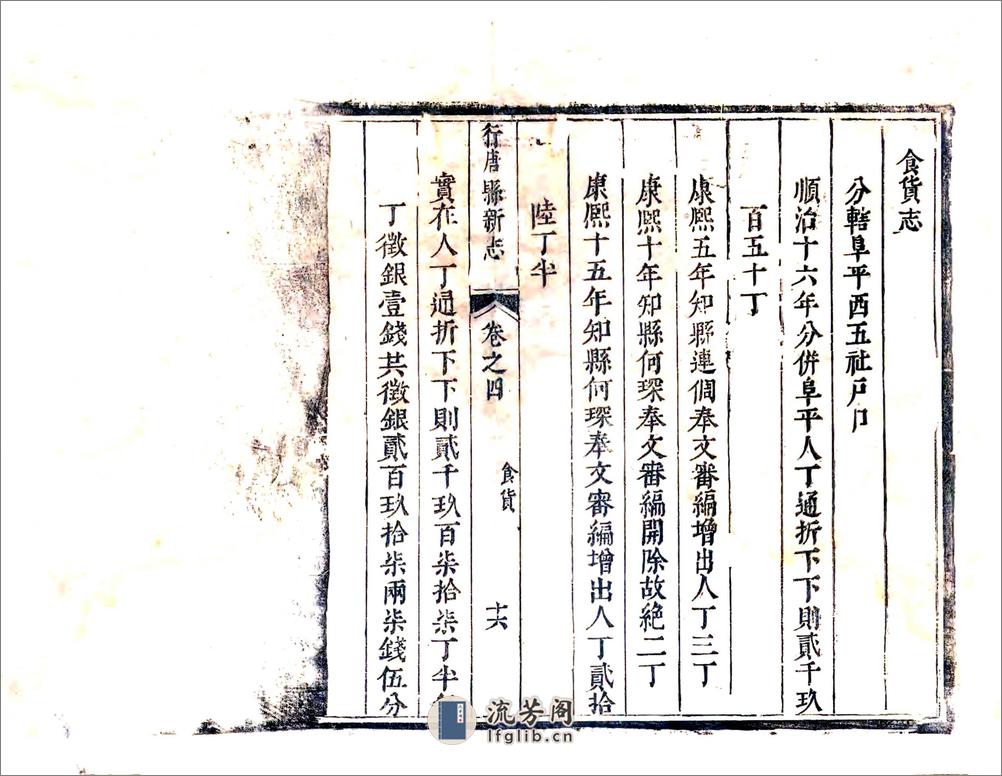 食貨志
分轄阜平西五社戶口
順治十六年分併阜平人丁通折下下則貳千玖
百五十丁
康熙五年知縣連倜奉文審編增出人丁三丁
康熙十年知縣何琛奉文審編開除故絕二丁
康熙十五年知縣何琛奉文審編增出人丁貳拾
陸丁半
行唐縣新志 卷之四 食貨 十六
實在人丁通折下下則貳千玖百柒拾柒丁半
丁徵銀壹錢共徵銀貳百玖拾柒兩柒錢伍分
流芳阁
lfglib.cn